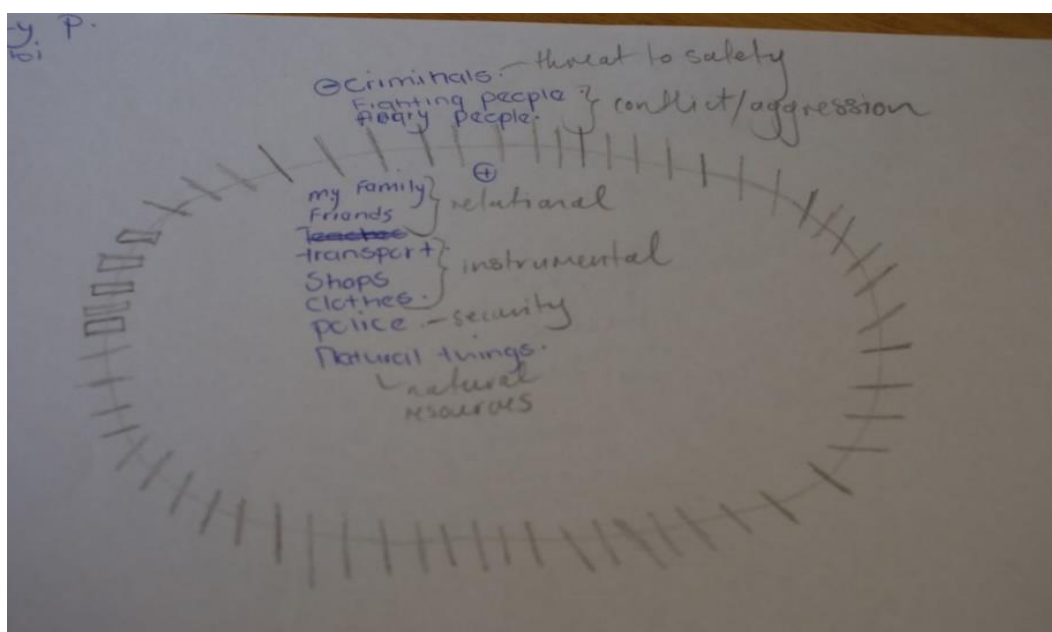 y P.
⊖ Criminals. - threat to safety
Fighting people } conflict/aggression
Angry people.
⊕
my Family } relational
Friends
Teacher
transport } instrumental
Shops
Clothes.
police. - security
Natural things.
natural
resources